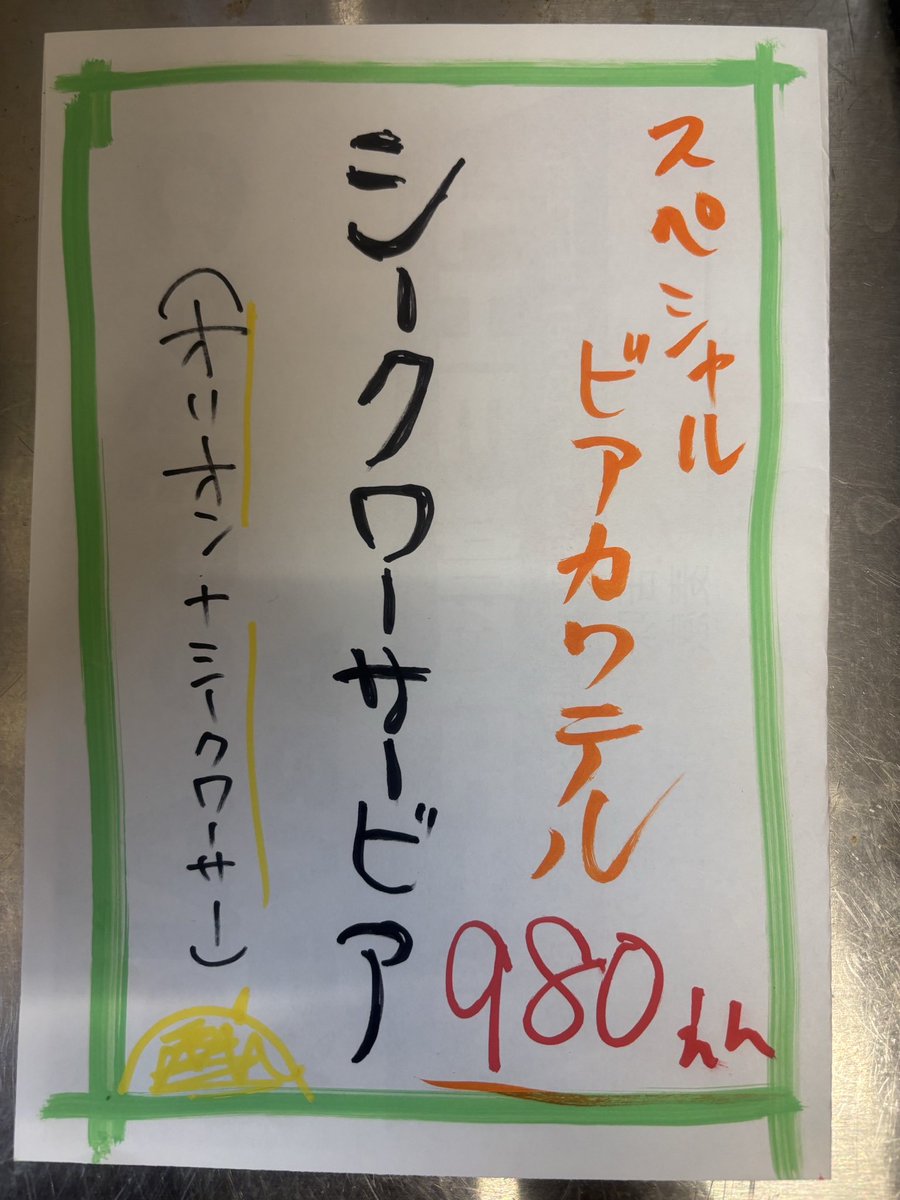 スペシャル
ビアカクテル
980えん
シークワーサービア
(オリオン+シークワーサー)